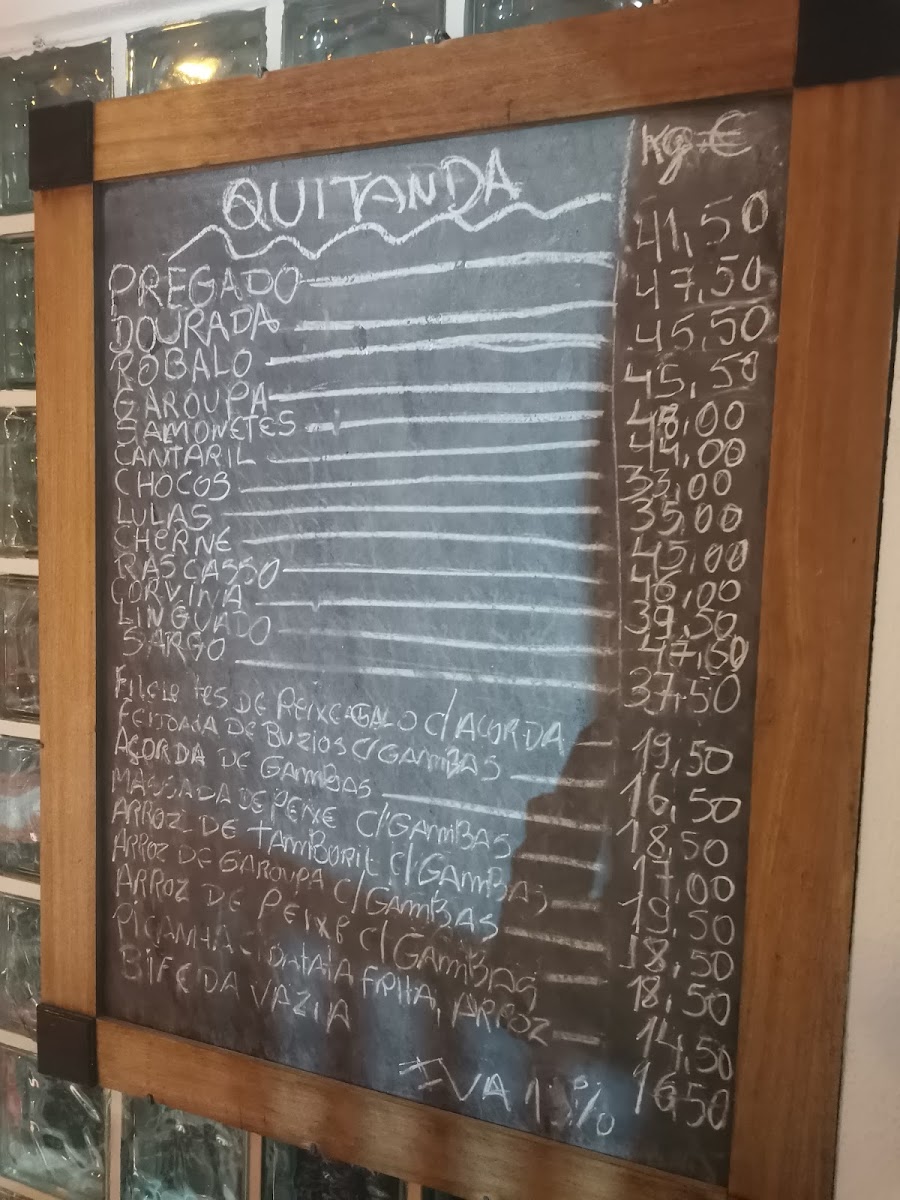 QUITANDA Kg €
PREGADO 41,50
DOURADA 47,50
ROBALO 45,50
GAROUPA 45,50
SAMONETES 48,00
CANTARIL 44,00
CHOCOS 33,00
LULAS 35,00
CHERNE 45,00
RASCASSO 46,00
CORVINA 39,50
LINGUADO 47,50
SARGO 37,50
FILELETES DE PEIXE GALO C/ AÇORDA 19,50
FEIJOADA DE BUZIOS C/ GAMBAS 16,50
AÇORDA DE GAMBAS 18,50
MASSADA DE PEIXE C/ GAMBAS 17,00
ARROZ DE TAMBORIL C/ GAMBAS 19,50
ARROZ DE GAROUPA C/ GAMBAS 18,50
ARROZ DE PEIXE C/ GAMBAS 18,50
PICANHA BATATA FRITA, ARROZ 14,50
BIFE DA VAZIA 16,50
IVA %